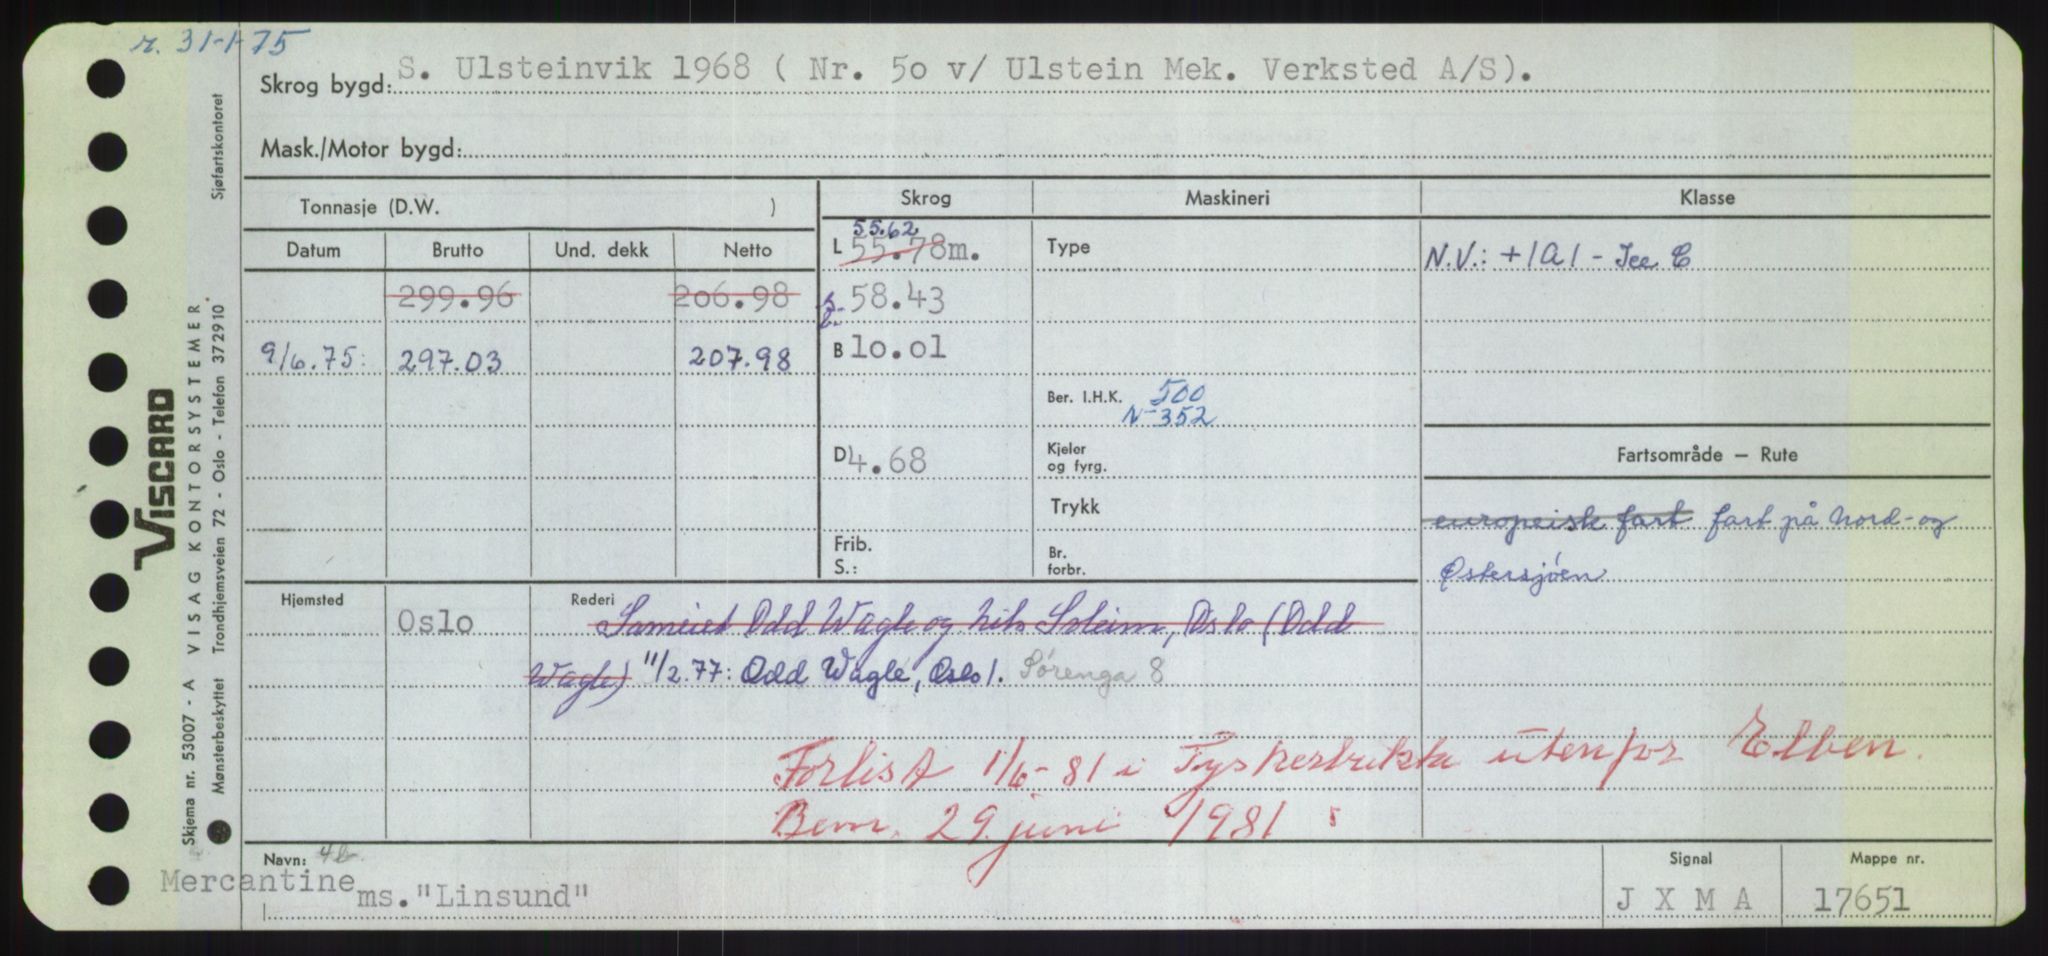 r. 31-1-75
Skrog bygd: S. Ulsteinvik 1968 ( Nr. 5o v/ Ulstein Mek. Verksted A/S).
Mask./Motor bygd:
Tonnasje (D.W. )
Skrog
Maskineri
Klasse
Datum
Brutto
Und. dekk
Netto
55.62
L 55.78m.
Type
N.V.: +1A1 - Ice C
299.96
2o6.98
58.43
9/6.75: 297.03 207.98
B 1o.o1
Ber. I.H.K. 500
N-352
D 4.68
Kjeler
og fyrg.
Fartsområde — Rute
Trykk
europeisk fart fart på Nord- og
Østersjøen
Frib.
S.:
Br.
forbr.
Hjemsted
Oslo
Rederi
Sameiet Odd Wagle og Nils Soleim, Oslo (Odd
Wagle) 11/2.77: Odd Wagle, Oslo 1. Sørenga 8
Forlist 1/6-81 i Tyskebukta utenfor Elben.
Bem. 29. juni 1981
Navn:
Mercantine
ms."Linsund"
Signal
J X M A
Mappe nr.
17651
VISCARD
Skjema nr. 53007 - A VISAG KONTORSYSTEMER
Mønsterbeskyttet Trondhjemsveien 72 - Oslo - Telefon 372910 Sjøfartskontoret